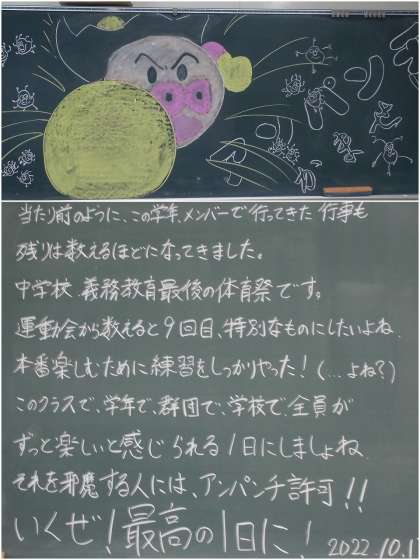 当たり前のように、この学年、メンバーで行ってきた行事も
残りは数えるほどになってきました。
中学校、義務教育最後の体育祭です。
運動会から数えると9回目、特別なものにしたいよね。
本番楽しむために練習をしっかりやった！(…よね？)
このクラスで、学年で、群団で、学校で、全員が
ずっと楽しいと感じられる1日にしましょね。
それを邪魔する人には、アンパンチ許可！！
いくぜ！最高の1日に！ 2022.10.1